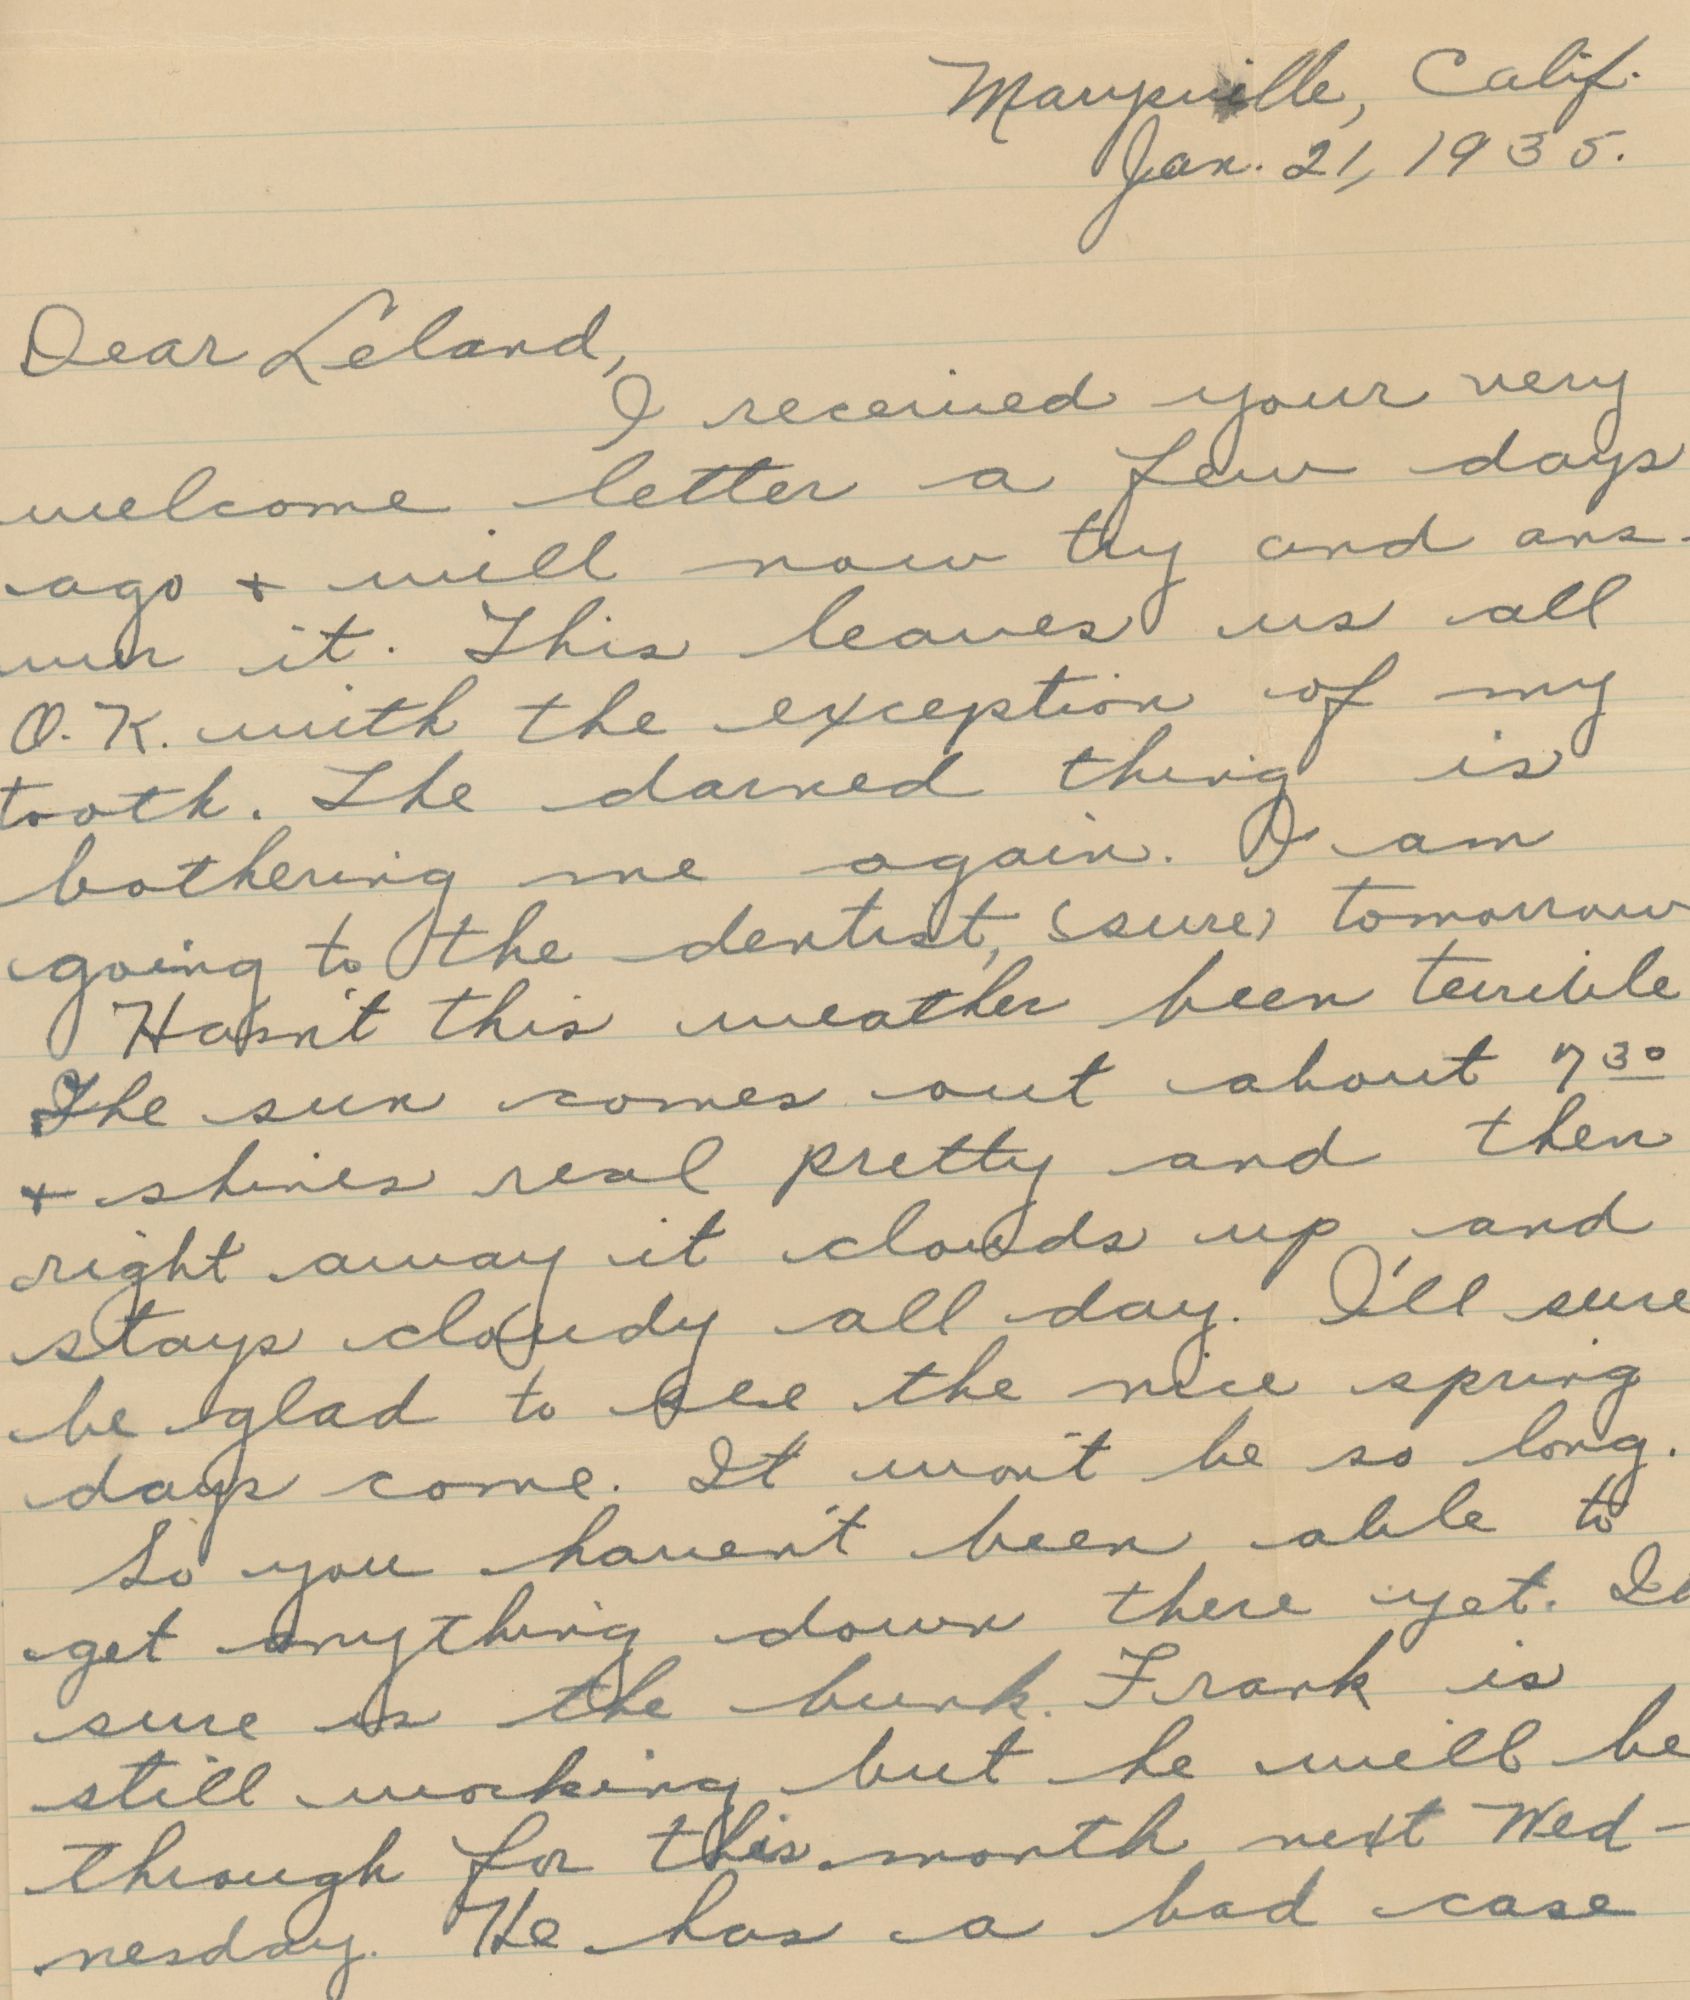 Marysville, Calif.
Jan. 21, 1935.
Dear Leland,
I received your very
welcome letter a few days
ago + will now try and ans-
wer it. This leaves us all
O.K. with the exception of my
tooth. The darned thing is
bothering me again. I am
going to the dentist, (sure) tomorrow
Hasn't this weather been terrible
The sun comes out about 7 30
+ shines real pretty and then
right away it clouds up and
stays cloudy all day. I'll sure
be glad to see the nice spring
days come. It won't be so long.
So you haven't been able to
get anything down there yet. It
sure is the bunk. Frank is
still working but he will be
through for this month next Wed-
nesday. He has a bad case